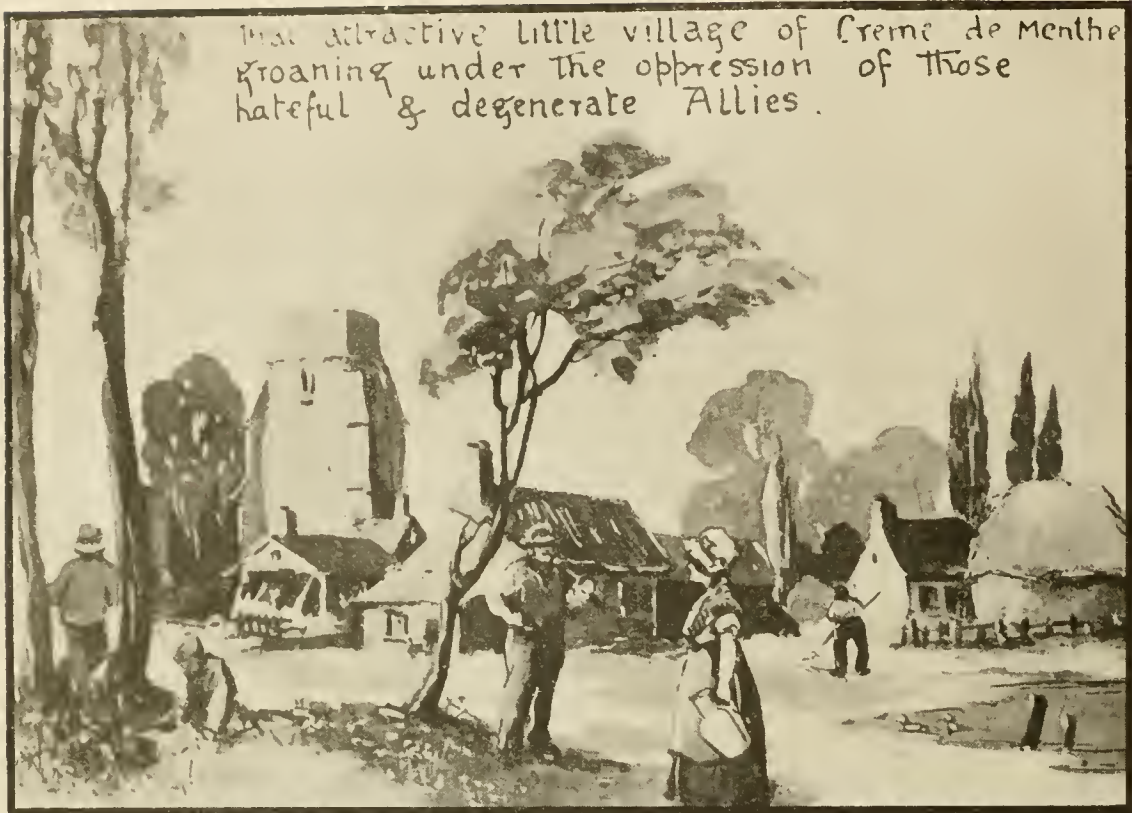 that attractive little village of Creme de Menthe
groaning under the oppression of those
hateful & degenerate Allies.